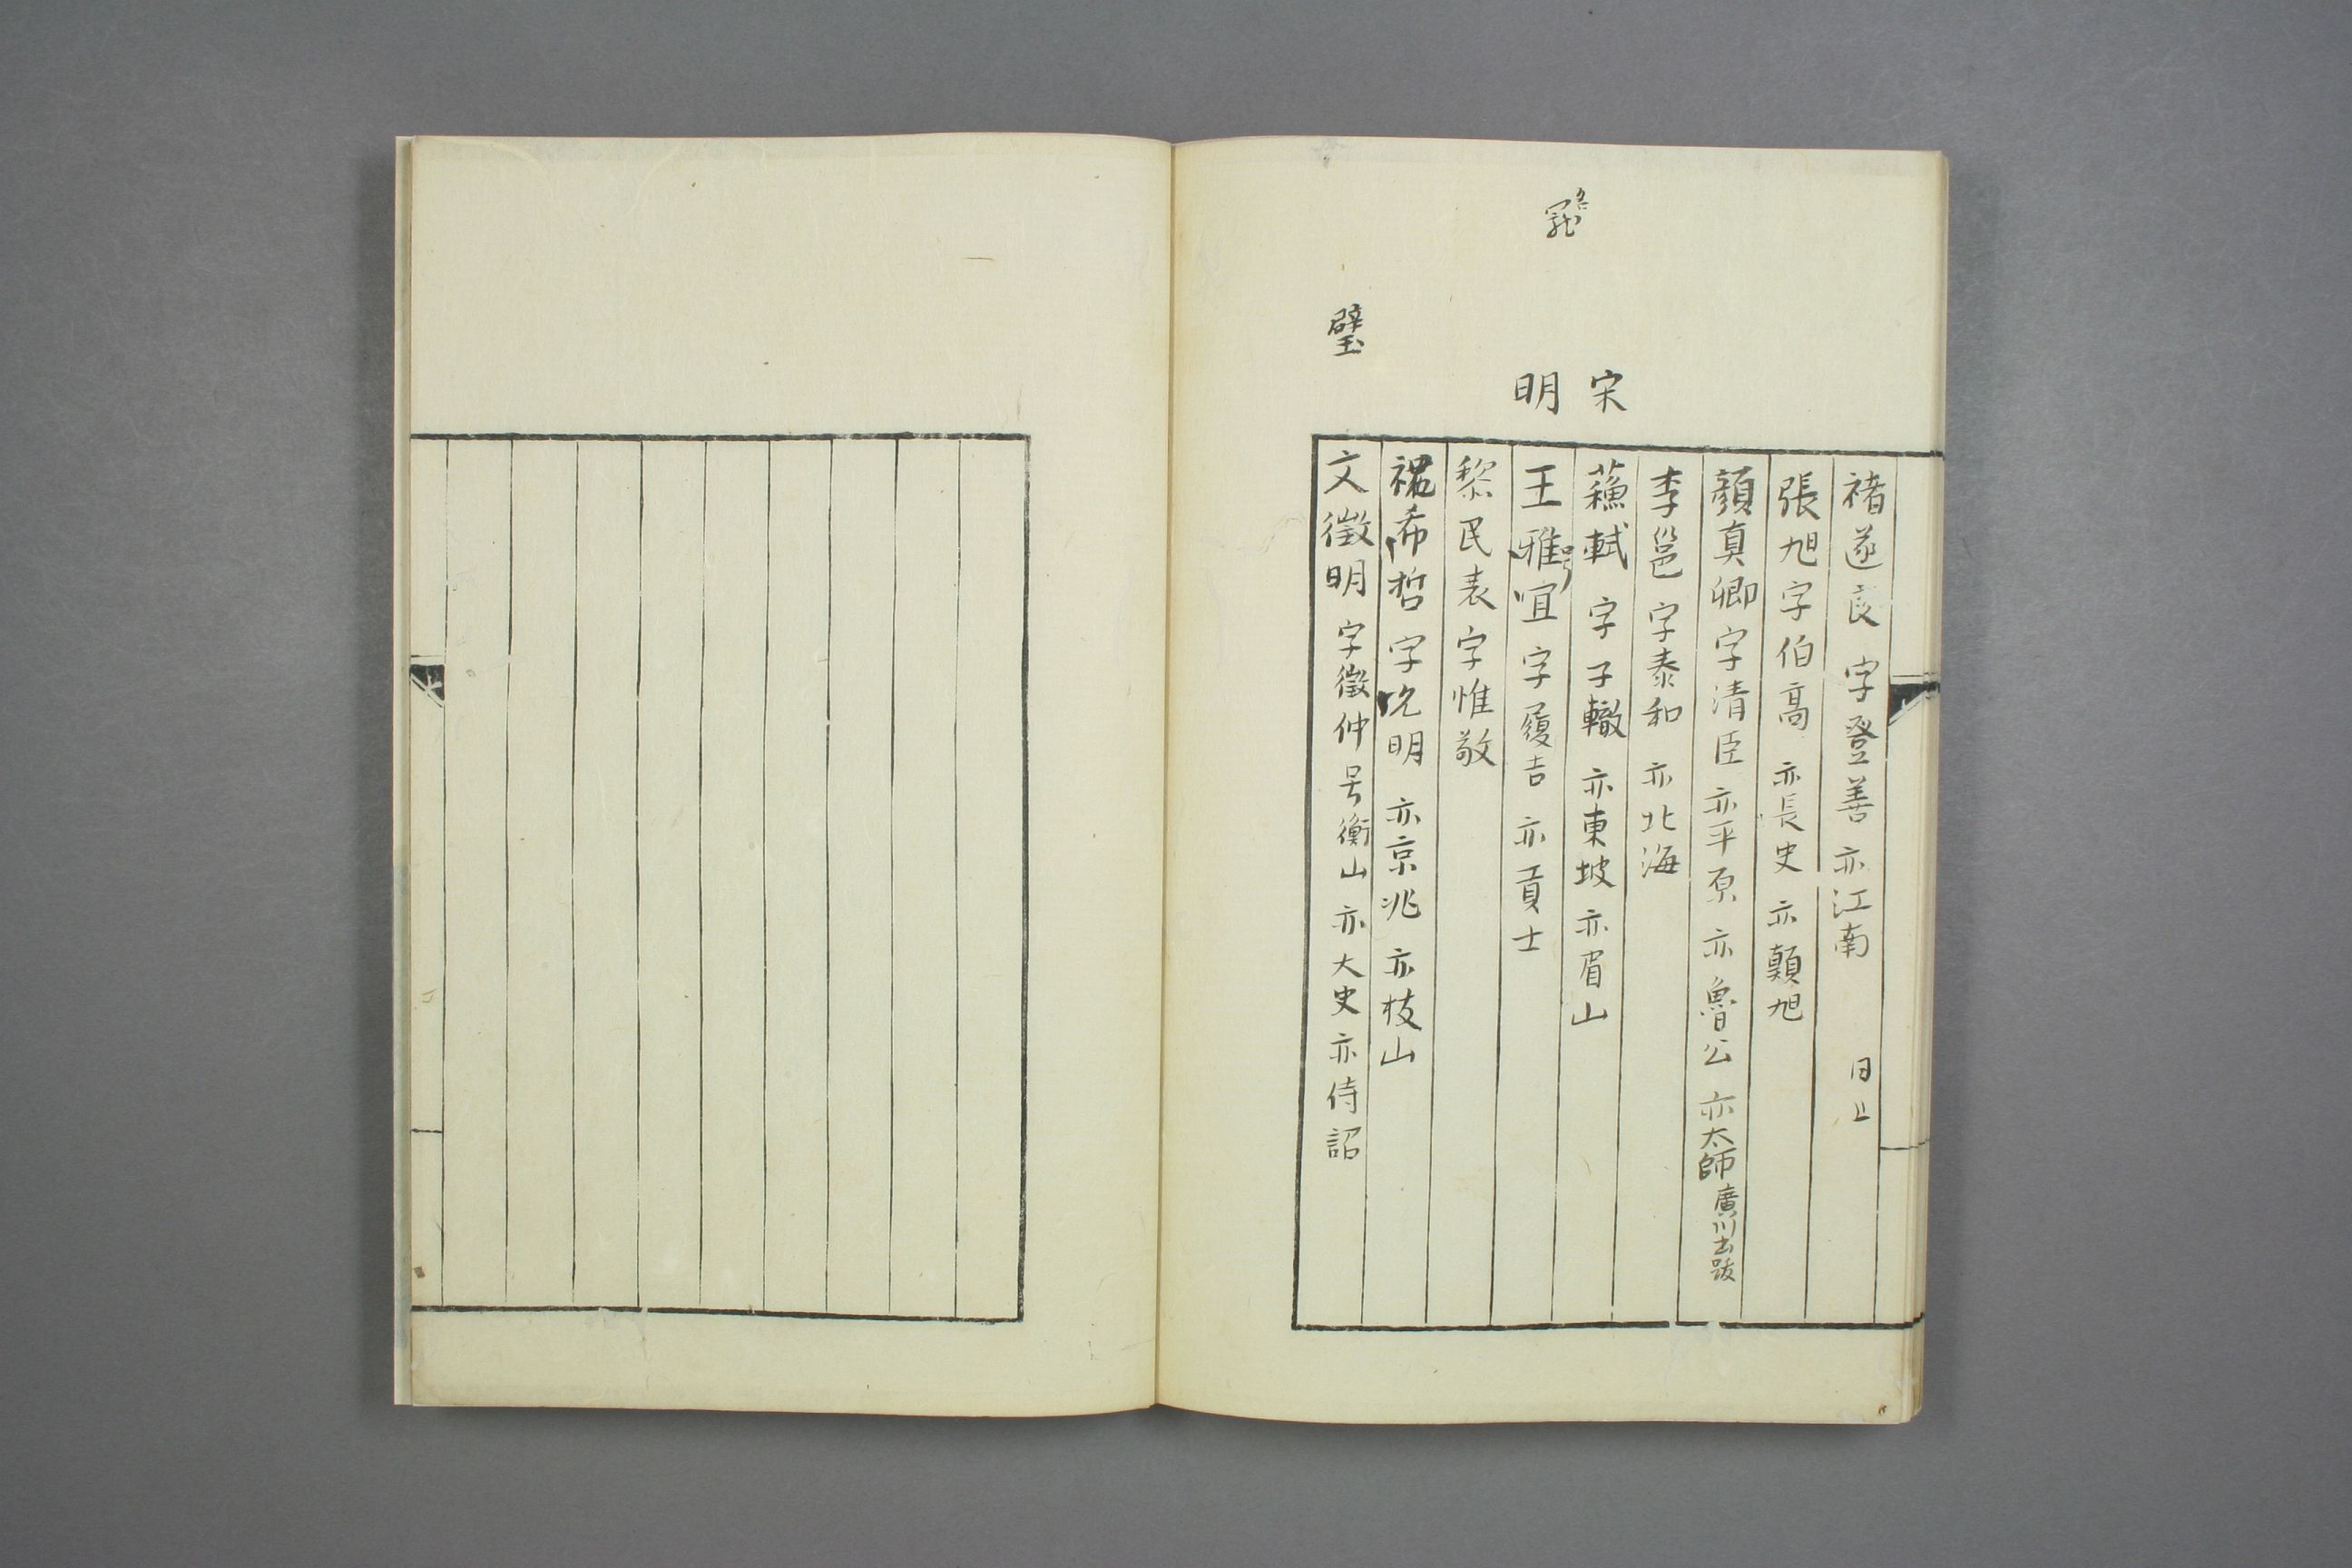 褚遂良 字登善 亦江南 同上
張旭字伯高 亦長史 亦顛旭
顏真卿字清臣 亦平原 亦魯公 亦太師廣川書跋
李邕 字泰和 亦北海
宋
蘓軾 字子轍 亦東坡 亦眉山
明
王雅宜 号 字履吉 亦貢士
黎民表 字惟敬
希哲 字明 亦京兆 亦枝山
璧
文徵明 字徵仲 号衡山 亦大史 亦侍詔